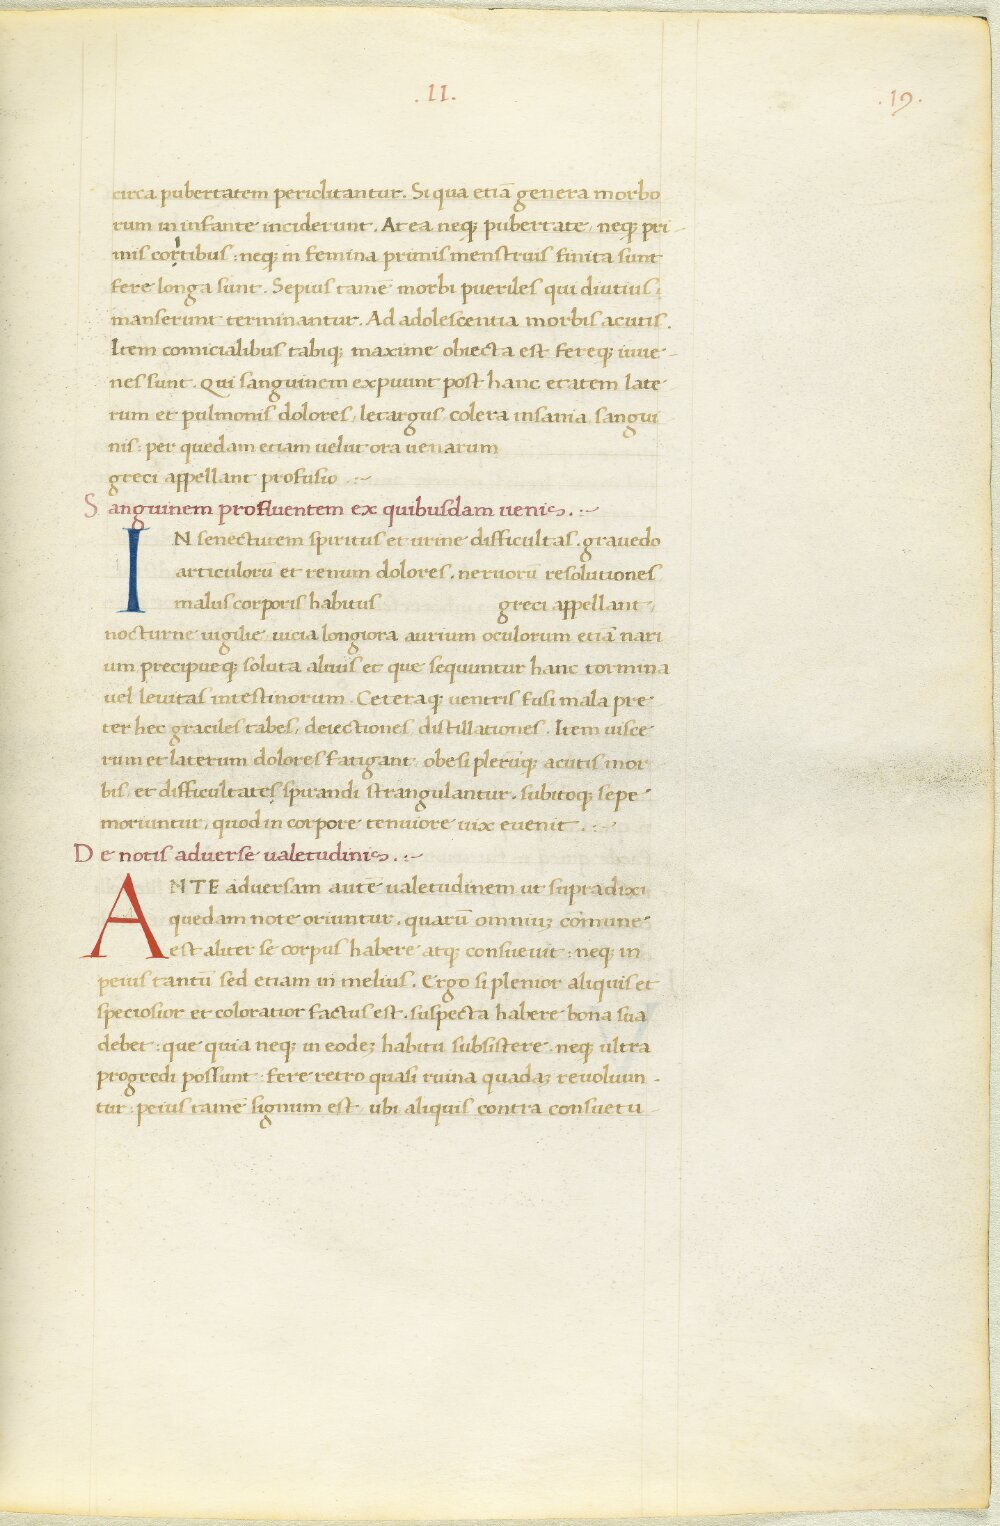 .II.
.19.
circa pubertatem periclitantur. Si qua etiā genera morbo
rum in infante inciderunt. At ea neq; pubertate, neq; pri-
mis cortibus: neq; in femina primis menstruis finita sunt
fere longa sunt. Sepius tamē morbi pueriles qui diutius
manserunt terminantur. Ad adolescentia morbis acutis.
Item comicialibus tabiq; maxime obiecta est fereq; iuue-
nes sunt. Qui sanguinem expuunt post hanc etatem late
rum et pulmonis dolores, letargus colera insania sangui
nis: per quedam etiam uelut ora uenarum
greci appellant profusio.:~
Sanguinem profluentem ex quibusdam uenis.:~
IN senectutem spiritus et urine difficultas. grauedo
articulorū et renum dolores. neruorū resolutiones
malus corporis habitus greci appellant,
nocturne uigilie uicia longiora aurium oculorum etiā nari
um precipueq; soluta aluus et que sequuntur hanc tormina
uel leuitas intestinorum. Ceteraq; uentris fusi mala pre
ter hec graciles tabes, deiectiones distillationes. Item uisce
rum et laterum dolores fatigant, obesi plerūq; acutis mor
bis, et difficultates spirandi strangulantur. subitoq; sepe
moriuntur, quod in corpore tenuiore uix euenit.:~
De notis aduerse ualetudinis.:~
ANTE aduersam autē ualetudinem ut supra dixi
quedam note oriuntur. quarū omniuʒ comune
est aliter se corpus habere atq; consueuit: neq; in
peius tantū sed etiam in melius. Ergo si plenior aliquis et
speciosior et coloratior factus est. suspecta habere bona sua
debet: que quia neq; in eodeʒ habitu subsistere. neq; ultra
progredi possunt: fere retro quasi ruina quadaʒ reuoluun-
tur: peius tamē signum est, ubi aliquis contra consuetu-